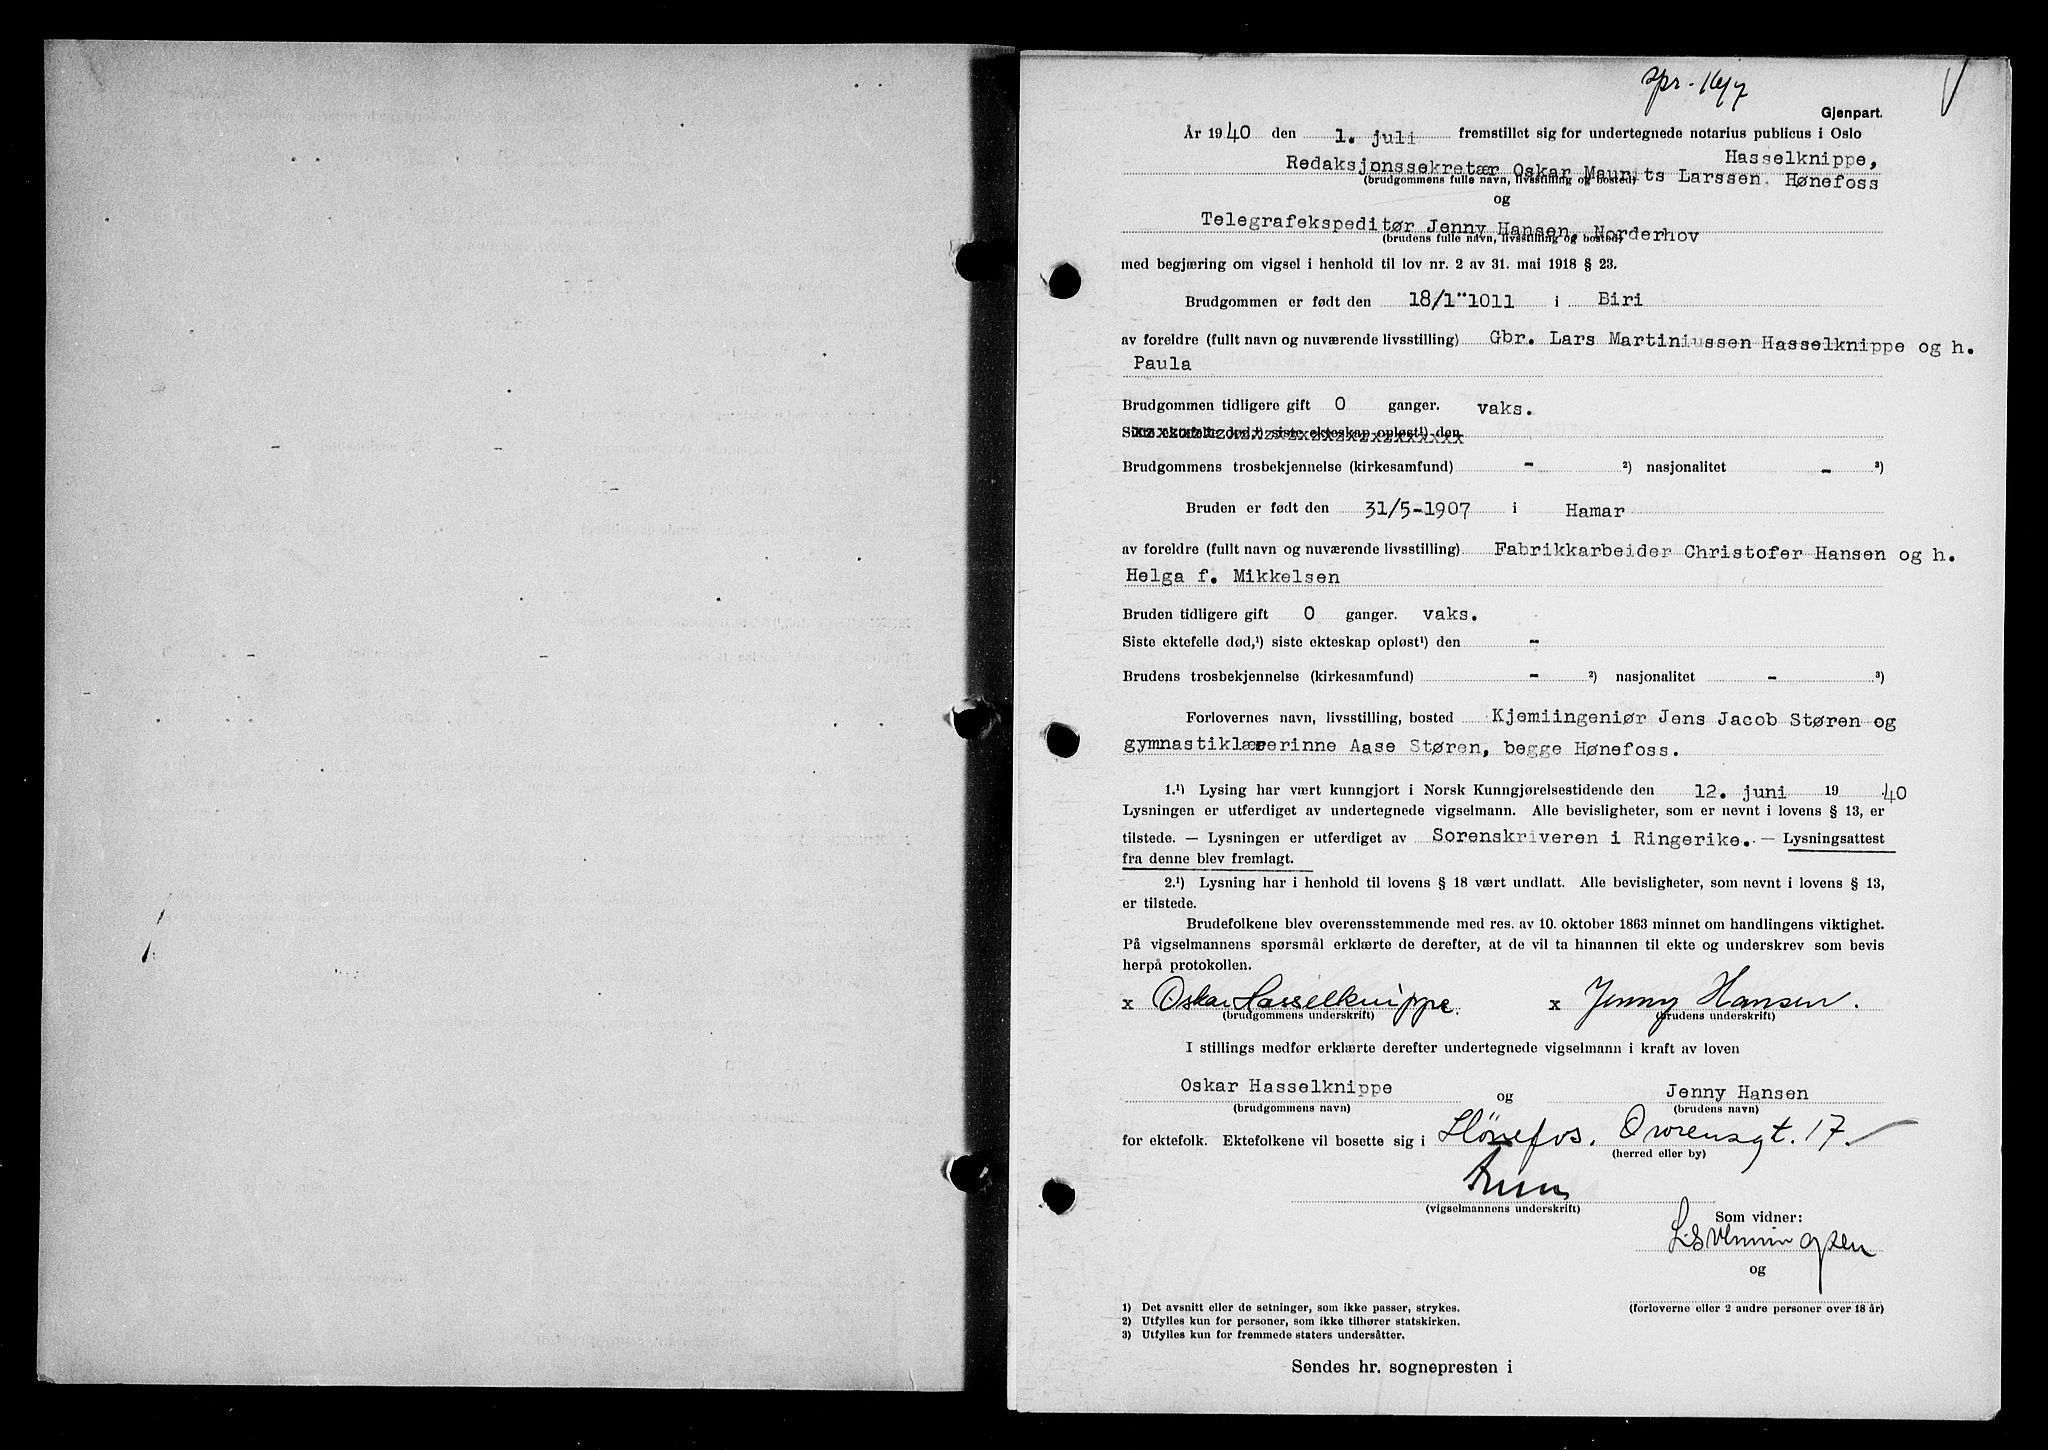 spr. 16/7
Gjenpart.
År 1940 den 1. juli fremstillet sig for undertegnede notarius publicus i Oslo
Hasselknippe,
Redaksjonssekretær Oskar Maurits Larssen. Hønefoss
(brudgommens fulle navn, livsstilling og bosted)
og
Telegrafekspeditør Jenny Hansen, Norderhov
(brudens fulle navn, livsstilling og bosted)
med begjæring om vigsel i henhold til lov nr. 2 av 31. mai 1918 § 23.
Brudgommen er født den 18/1"1011 i Biri
av foreldre (fullt navn og nuværende livsstilling) Gbr. Lars Martiniussen Hasselknippe og h.
Paula
Brudgommen tidligere gift 0 ganger. vaks.
Siste ektefelle død,¹) siste ekteskap opløst¹) den
Brudgommens trosbekjennelse (kirkesamfund) - ²) nasjonalitet - ³)
Bruden er født den 31/5-1907 i Hamar
av foreldre (fullt navn og nuværende livsstilling) Fabrikkarbeider Christofer Hansen og h.
Helga f. Mikkelsen
Bruden tidligere gift 0 ganger. vaks.
Siste ektefelle død,¹) siste ekteskap opløst¹) den -
Brudens trosbekjennelse (kirkesamfund) - ²) nasjonalitet - ³)
Forlovernes navn, livsstilling, bosted Kjemiingeniør Jens Jacob Støren og
gymnastiklærerinne Aase Støren, begge Hønefoss.
1.¹) Lysing har vært kunngjort i Norsk Kunngjørelsestidende den 12. juni 1940
Lysningen er utferdiget av undertegnede vigselmann. Alle bevisligheter, som er nevnt i lovens § 13, er
tilstede. — Lysningen er utferdiget av Sorenskriveren i Ringerike. — Lysningsattest
fra denne blev fremlagt.
2.¹) Lysning har i henhold til lovens § 18 vært undlatt. Alle bevisligheter, som nevnt i lovens § 13,
er tilstede.
Brudefolkene blev overensstemmende med res. av 10. oktober 1863 minnet om handlingens viktighet.
På vigselmannens spørsmål erklærte de derefter, at de vil ta hinannen til ekte og underskrev som bevis
herpå protokollen.
x Oskar Hasselknippe. x Jenny Hansen.
(brudgommens underskrift) (brudens underskrift)
I stillings medfør erklærte derefter undertegnede vigselmann i kraft av loven
Oskar Hasselknippe og Jenny Hansen
(brudgommens navn) (brudens navn)
for ektefolk. Ektefolkene vil bosette sig i Hönefos. Owrensgt. 17
(herred eller by)
(vigselmannens underskrift)
Som vidner:
og
(forloverne eller 2 andre personer over 18 år)
1) Det avsnitt eller de setninger, som ikke passer, strykes.
2) Utfylles kun for personer, som ikke tilhører statskirken.
3) Utfylles kun for fremmede staters undersåtter.
Sendes hr. sognepresten i